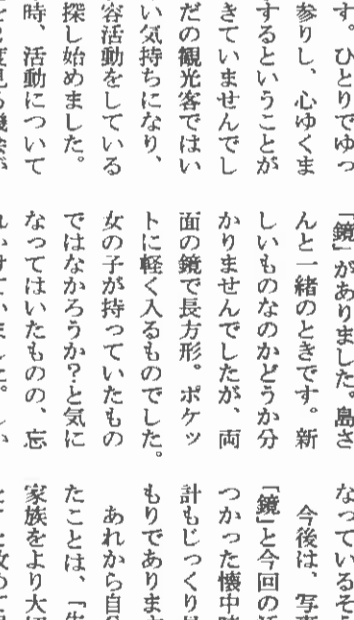 す。ひとりでゆっ
参りし、心ゆくま
するということが
きていませんでし
だの観光客ではい
い気持ちになり、
容活動をしている
探し始めました。
時、活動について
「鏡」がありました。島さ
んと一緒のときです。新
しいものなのかどうか分
かりませんでしたが、両
面の鏡で長方形。ポケッ
トに軽く入るものでした。
女の子が持っていたもの
ではなかろうか?と気に
なってはいたものの、忘
れかけていました。
なっているそう
今後は、写真
「鏡」と今回の
つかった懐中時
計もじっくり
もりであります
あれから自分
たことは、「
家族をより大切